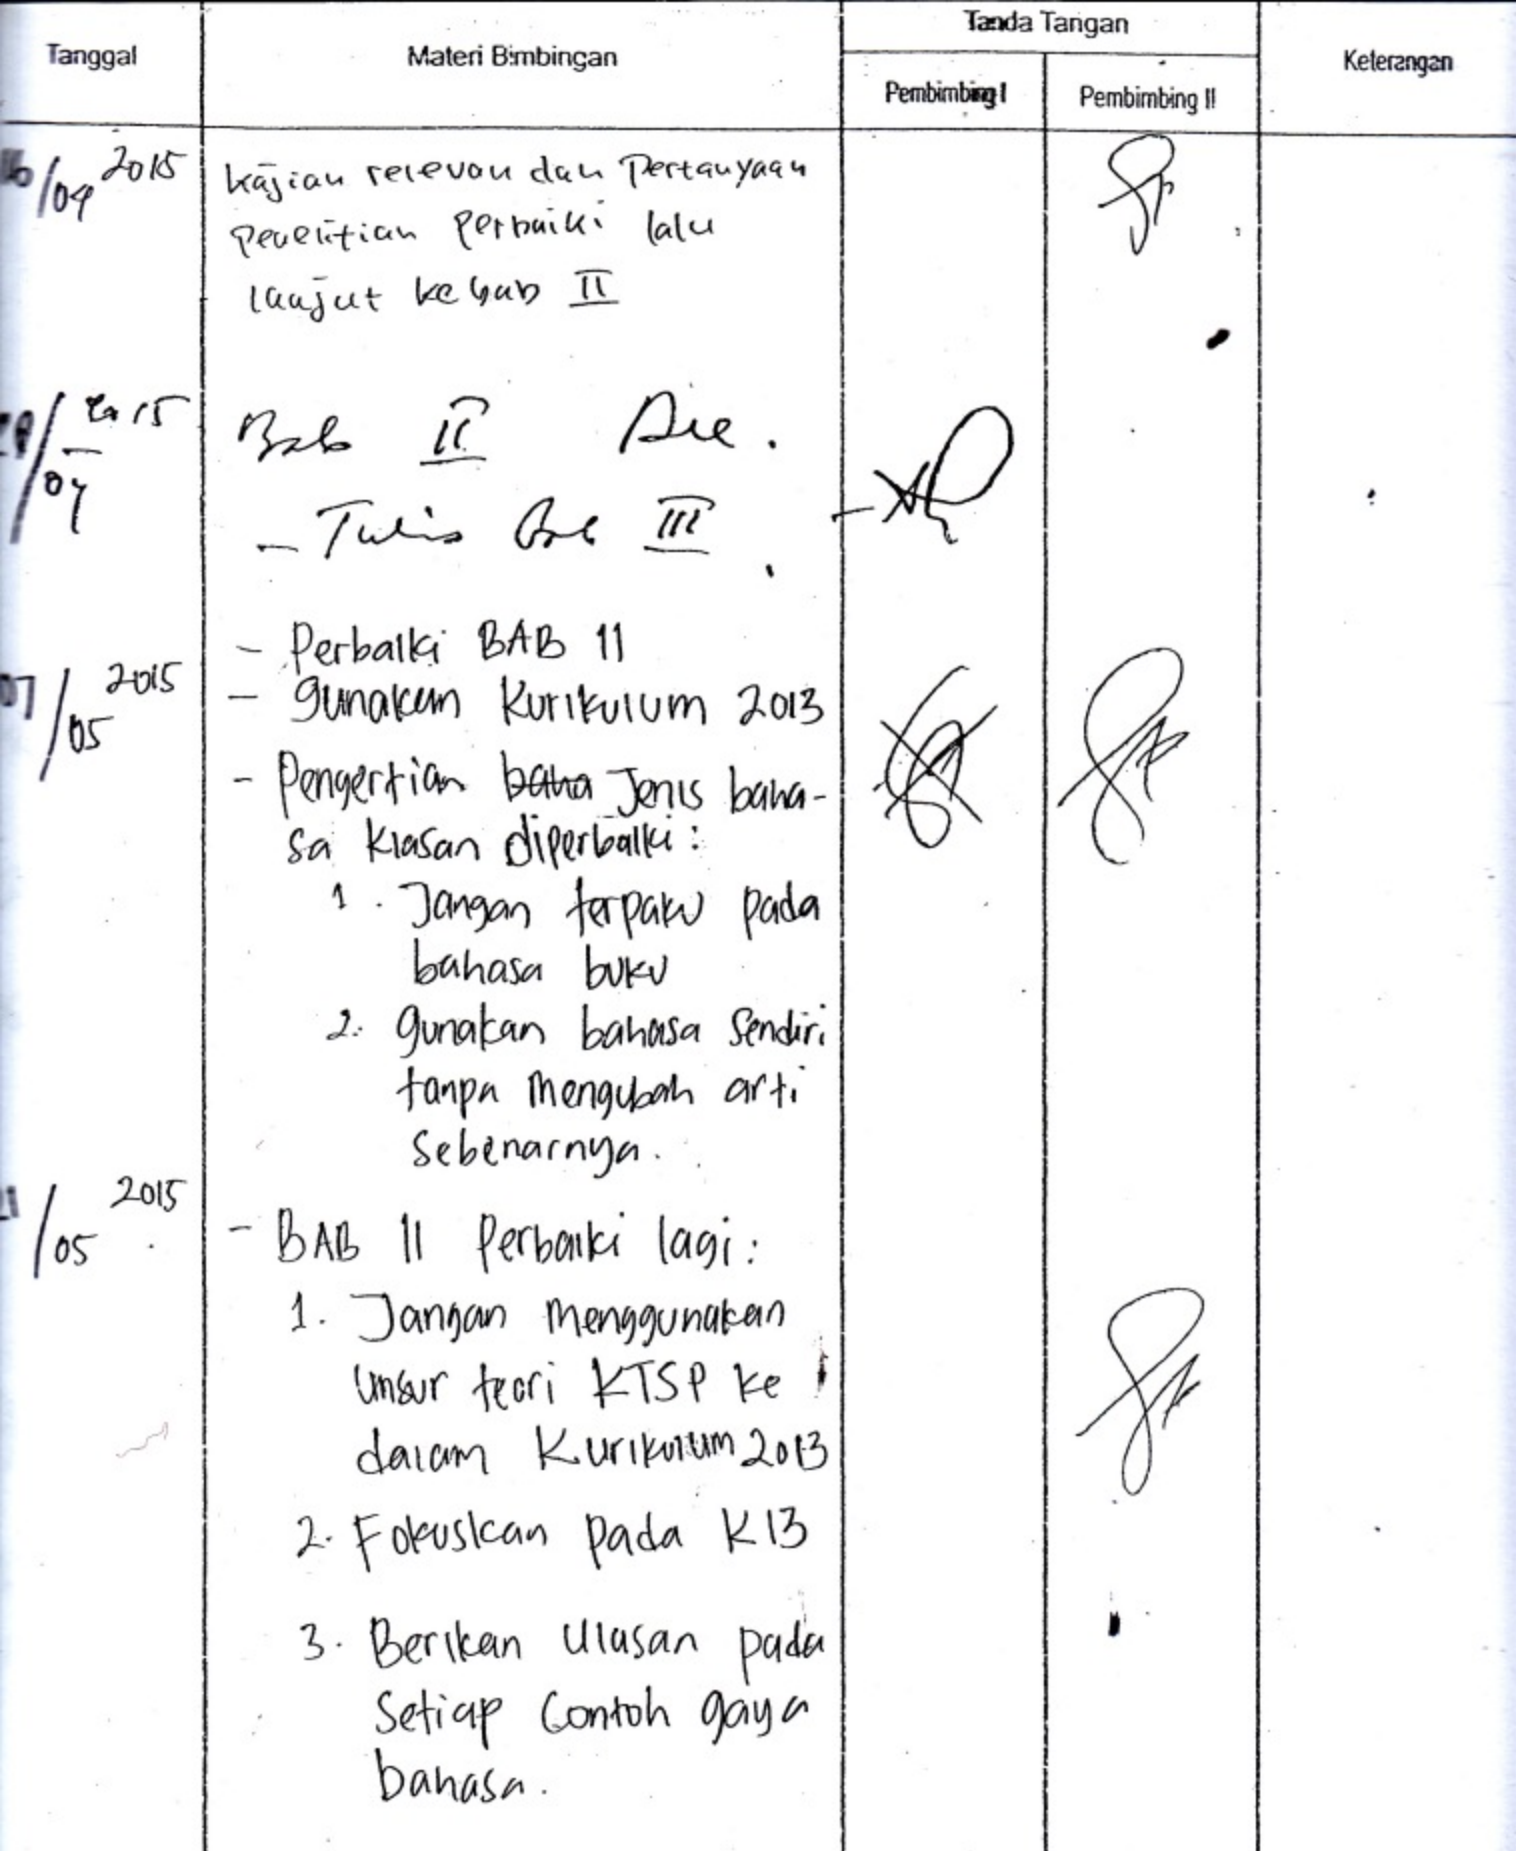 Tanggal
Materi Bimbingan
Tanda Tangan
Keterangan
Pembimbing I
Pembimbing II
16/04 2015
kajian relevan dan Pertanyaan
penelitian Perbaiki lalu
lanjut ke bab II
2015
04
Bab II Acc.
- Tulis Bab III
- Perbaiki BAB 11
07/05 2015
- gunakan Kurikulum 2013
- Pengertian baha Jenis baha-
sa kiasan diperbaiki:
1. Jangan terpaku pada
bahasa buku
2. gunakan bahasa sendiri
tanpa mengubah arti
sebenarnya.
21/05 2015
- BAB 11 Perbaiki lagi:
1. Jangan menggunakan
unsur teori KTSP ke
dalam Kurikulum 2013
2. Fokuskan pada K13
3. Berikan ulasan pada
setiap contoh gaya
bahasa.